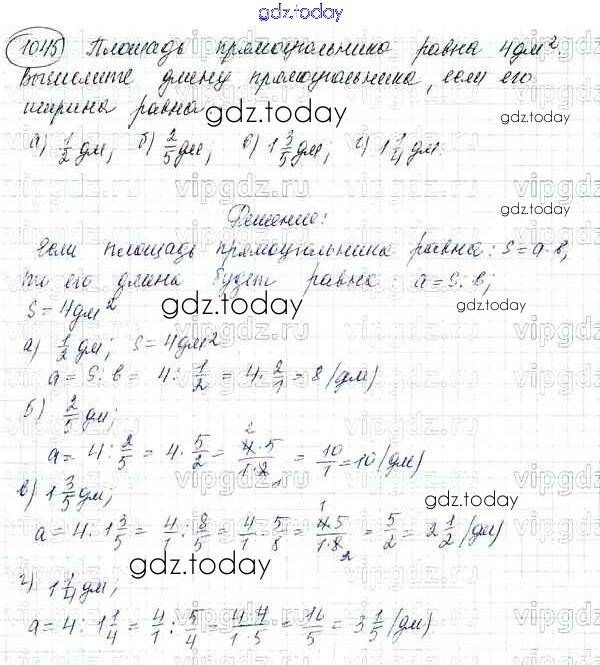 gdz.today
1045) Площадь прямоугольника равна 4дм².
Вычислите длину прямоугольника, если его
ширина равна
gdz.today
а) 1/2 дм; б) 2/5 дм; в) 1 3/5 дм; г) 1 1/4 дм.
vipgdz.ru
Решение:
Если площадь прямоугольника равна: S=a·b,
то его длина будет равна: a=S:b;
S=4дм²
gdz.today
а) 1/2 дм; S=4дм²
a=S:b=4:1/2=4·2/1=8 (дм)
б) 2/5 дм;
a=4:2/5=4·5/2=4·5/1·2=10/1=10 (дм)
в) 1 3/5 дм;
gdz.today
a=4:1 3/5=4/1:8/5=4/1·5/8=4·5/1·8=5/2=2 1/2 (дм)
gdz.today
г) 1 1/4 дм;
a=4:1 1/4=4/1:5/4=4·4/1·5=16/5=3 1/5 (дм).
gdz.today